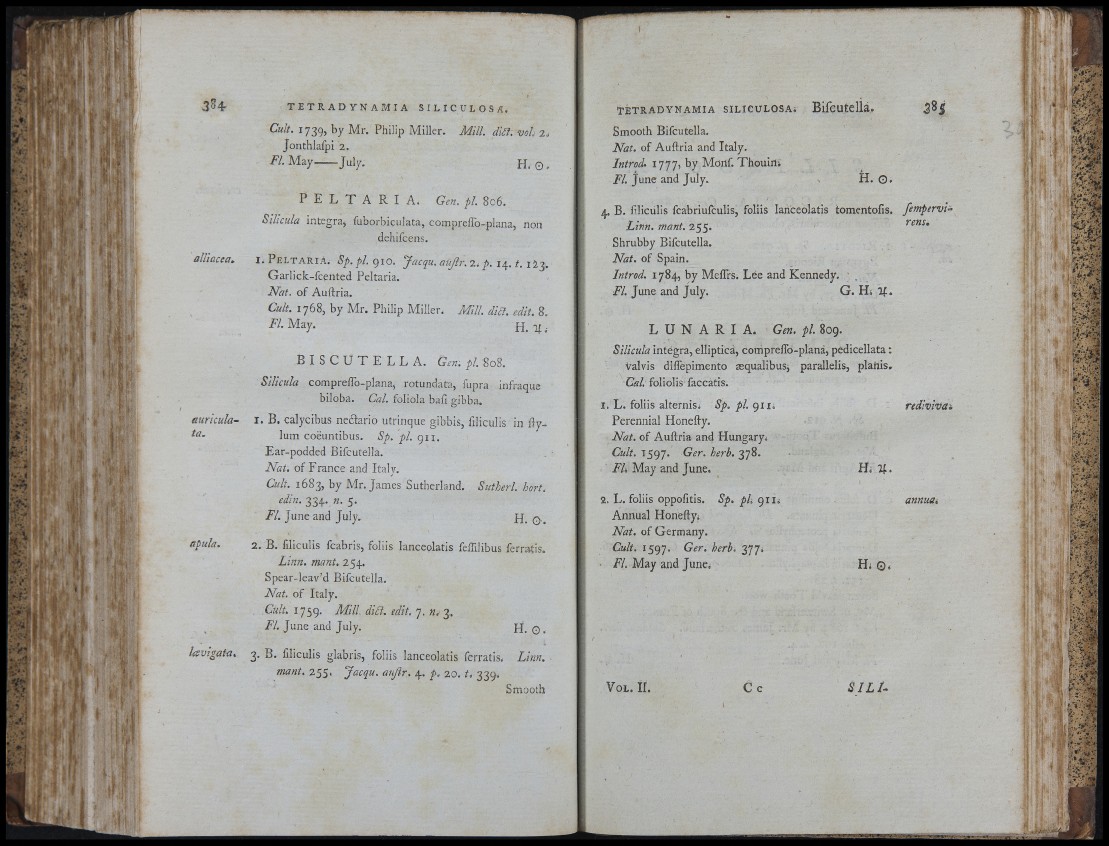 384 TETRADYNAMIA SILICULOSA.
Cult. 1739, by Mr. Philip Miller. Mill. dict. vol. 2.
Jonthlaſpi 2.
Fl. May——July. H. ☉.
PELTARIA. Gen. pl. 806.
Silicula integra, ſuborbiculata, compreſſo-plana, non
dehiſcens.
alliacea. 1. PELTARIA. Sp. pl. 910. Jacqu. auſtr. 2. p. 14. t. 123.
Garlick-ſcented Peltaria.
Nat. of Auſtria.
Cult. 1768, by Mr. Philip Miller. Mill. dict. edit. 8.
Fl. May. H. ♃.
BISCUTELLA. Gen. pl. 808.
Silicula compreſſo-plana, rotundata, ſupra infraque
biloba. Cal. foliola baſi gibba.
auricula- 1. B. calycibus nectario utrinque gibbis, ſiliculis in ſty-
ta. lum coëuntibus. Sp. pl. 911.
Ear-podded Biſcutella.
Nat. of France and Italy.
Cult. 1683, by Mr. James Sutherland. Sutherl. hort.
edin. 334. n. 5.
Fl. June and July. H. ☉.
apula. 2. B. ſiliculis ſcabris, foliis lanceolatis ſeſſilibus ſerratis.
Linn. mant. 254.
Spear-leav'd Biſcutella.
Nat. of Italy.
Cult. 1759. Mill. dict. edit. 7. n. 3.
Fl. June and July. H. ☉.
lævigata. 3. B. ſiliculis glabris, foliis lanceolatis ſerratis. Linn.
mant. 255. Jacqu. auſtr. 4. p. 20. t. 339.
Smooth
TETRADYNAMIA SILICULOSA. Biſcutella. 385
Smooth Biſcutella.
Nat. of Auſtria and Italy.
Introd. 1777, by Monſ. Thouin.
Fl. June and July. H. ☉.
4. B. ſiliculis ſcabriuſculis, foliis lanceolatis tomentoſis. ſempervi-
Linn. mant. 255. rens.
Shrubby Biſcutella.
Nat. of Spain.
Introd. 1784, by Meſſrs. Lee and Kennedy.
Fl. June and July. G. H. ♃.
LUNARIA. Gen. pl. 809.
Silicula integra, elliptica, compreſſo-plana, pedicellata:
valvis diſſepimento æqualibus, parallelis, planis.
Cal. foliolis ſaccatis.
1. L. foliis alternis. Sp. pl. 911. rediviva.
Perennial Honeſty.
Nat. of Auſtria and Hungary.
Cult. 1597. Ger. herb. 378.
Fl. May and June. H. ♃.
2. L. foliis oppoſitis. Sp. pl. 911. annua.
Annual Honeſty.
Nat. of Germany.
Cult. 1597. Ger. herb. 377.
Fl. May and June. H. ☉.
VOL. II. C c SILI-